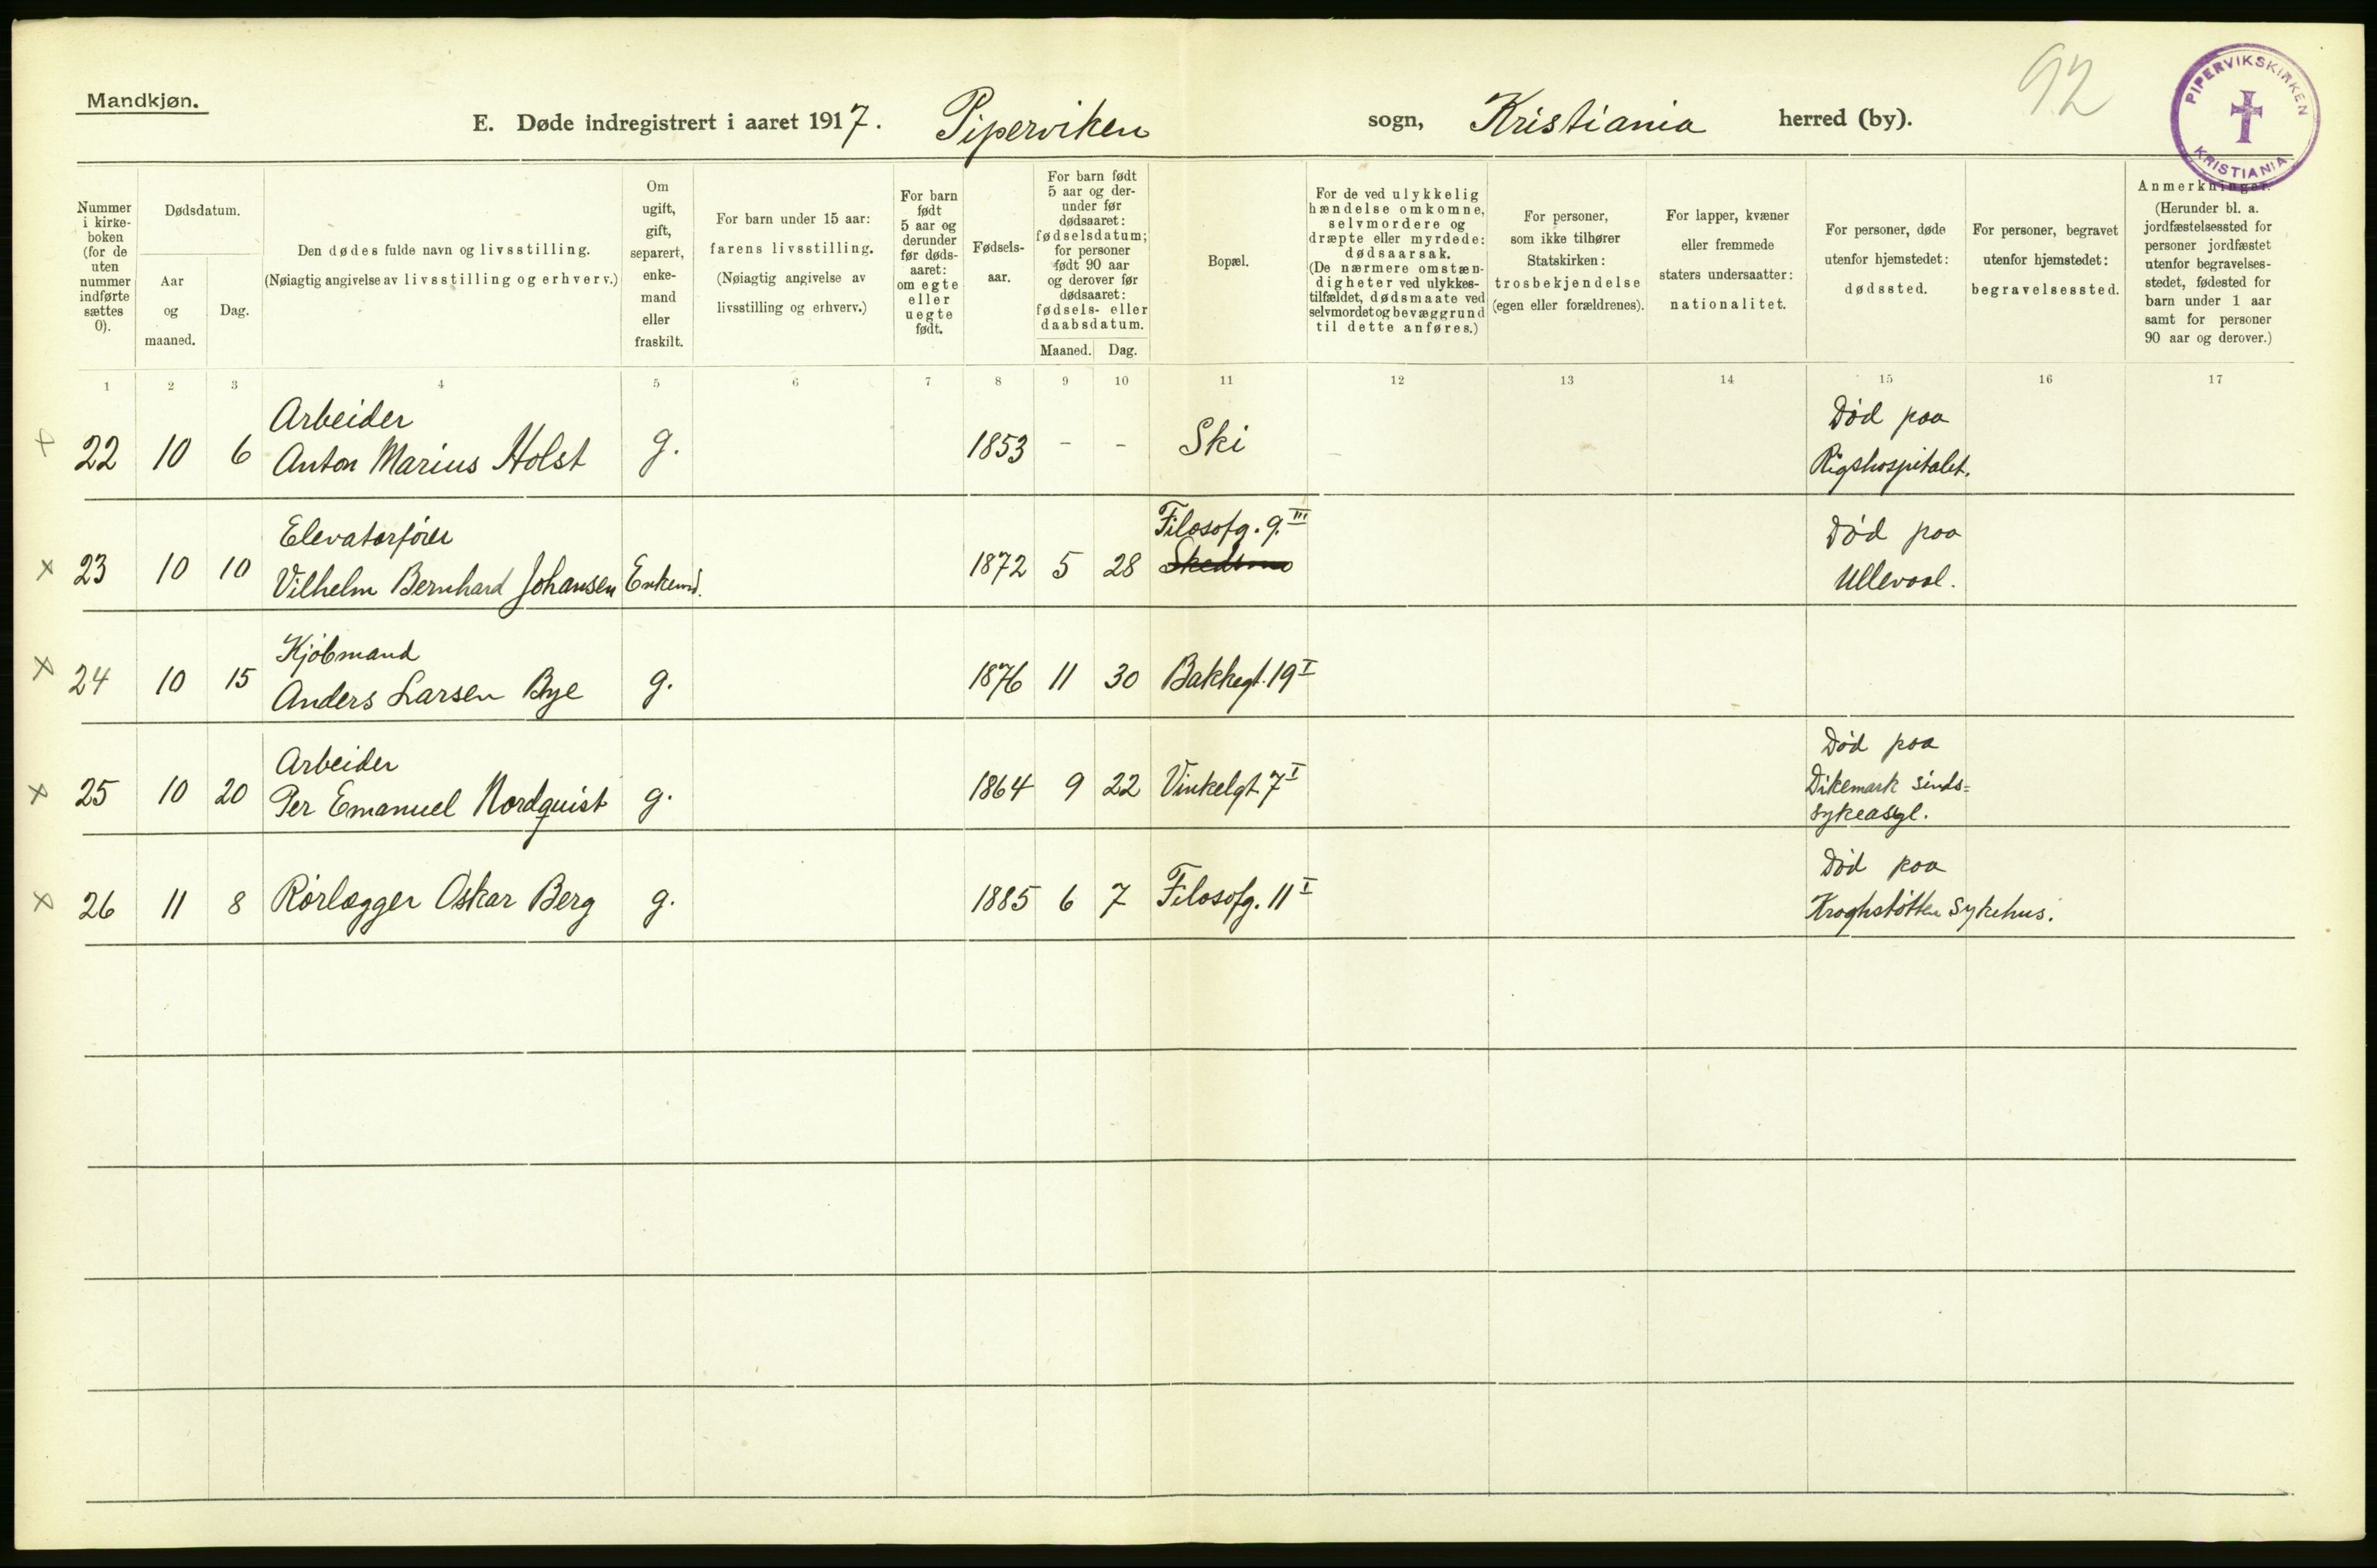 Mandkjøn.
92
PIPERVIKSKIRKEN
KRISTIANIA
E. Døde indregistrert i aaret 1917. Piperviken sogn, Kristiania herred (by).
Nummer i kirke-boken (for de uten nummer indførte sættes 0).
Dødsdatum.
Aar og maaned.
Dag.
Den dødes fulde navn og livsstilling.
(Nøiagtig angivelse av livsstilling og erhverv.)
Om ugift, gift, separert, enke-mand eller fraskilt.
For barn under 15 aar:
farens livsstilling.
(Nøiagtig angivelse av
livsstilling og erhverv.)
For barn født 5 aar og derunder før døds-aaret: om egte eller uegte født.
Fødsels-aar.
For barn født 5 aar og der-under før dødsaaret: fødselsdatum; for personer født 90 aar og derover før dødsaaret: fødsels- eller daabsdatum.
Maaned. Dag.
Bopæl.
For de ved ulykkelig hændelse omkomne, selvmordere og dræpte eller myrdede: dødsaarsak.
(De nærmere omstæn-digheter ved ulykkes-tilfældet, dødsmaate ved selvmordet og bevæggrund til dette anføres.)
For personer, som ikke tilhører Statskirken: trosbekjendelse (egen eller forældrenes).
For lapper, kvæner eller fremmede staters undersaatter: nationalitet.
For personer, døde utenfor hjemstedet: dødssted.
For personer, begravet utenfor hjemstedet: begravelsessted.
Anmerkninger.
(Herunder bl. a. jordfæstelsessted for personer jordfæstet utenfor begravelses-stedet, fødested for barn under 1 aar samt for personer 90 aar og derover.)
1 2 3 4 5 6 7 8 9 10 11 12 13 14 15 16 17
Arbeider Død paa
× 22 10 6 Anton Marius Holst g. 1853 - - Ski Rigshospitalet.
Elevatorfører Filosofg. 9 III Død paa
× 23 10 10 Vilhelm Bernhard Johansen Enkemd. 1872 5 28 Skedsmo Ullevaal.
Kjøbmand
× 24 10 15 Anders Larsen Bye g. 1876 11 30 Bakkegt. 19 I
Arbeider Død paa
× 25 10 20 Per Emanuel Nordquist g. 1864 9 22 Vinkelgt. 7 I Dikemark sinds=
sykeasyl.
Død paa
× 26 11 8 Rørlægger Oskar Berg g. 1885 6 7 Filosofg. 11 I Kroghstøtten sykehus.